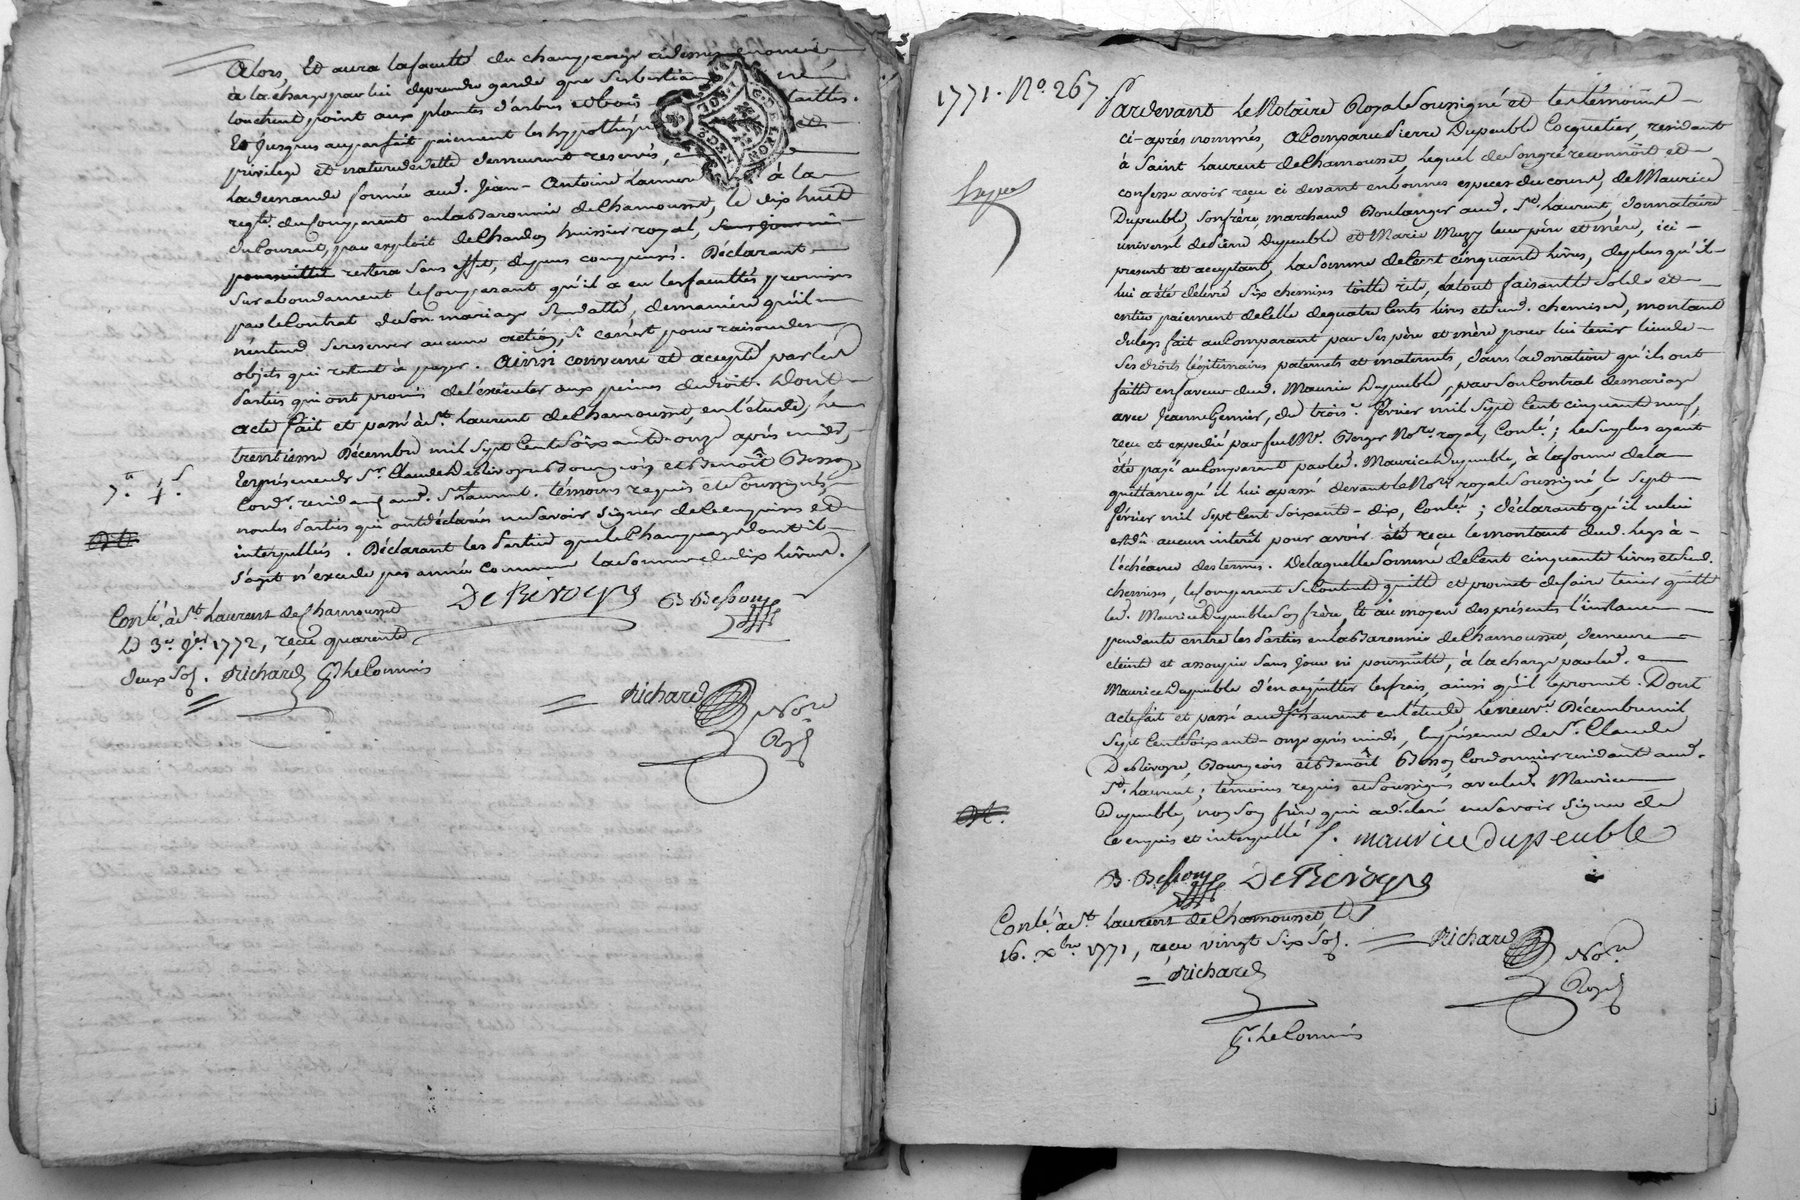 Alors, Et aura la faculté du champ
à la charge par lui de prendre garde que ses bestiaux
touchent point aux plantes d'arbres et bois taillis.
Et jusques au parfait paiement les hypothèques et
privilege et nature de dette demeurent reservés,
la demande formée aud. Jean-Antoine à la
reqte. du Comparent en la Baronnie de Chamousset, le dix huit
du Courant, par exploit de Chardon huissier royal,
poursuitte restera sans effet, depens compensés. Déclarant
Surabondamment le Comparant qu'il a eu les facultés promises
par le Contrat de son mariage Susdatté, de maniére qu'il
n'entend se reserver aucune action, Si ce n'est pour raison des
objets qui restent à payer. Ainsi convenu et accepté par les
Parties qui ont promis de l'exécuter aux peines de droit. Dont
acte fait et passé à St. Laurent de Chamousset, en l'étude, le
trentieme Décembre mil Sept Cent Soixante-onze après midi,
En présence de Sr. Claude DeRivoyre Bourgeois et Benoît Besson
Cordr. residant aud. St. Laurent. témoins requis et Soussignés,
non les Parties qui ont déclarées ne savoir Signer de ce enquises et
interpellées. Déclarant les Parties que le Champéage dont il
s'agit n'excede pas année Commune la somme de dix livres.
DeRivoyre B. Besson
Conlé. à St. Laurent de Chamousset
Le 3e. 1772, reçu quarente
deux Sols. Richard
Richard
Nore
Royal
1771. No. 267
Pardevant Le Notaire Royal Soussigné et les témoins
ci-après nommés, a Comparu Pierre Dupeuble Cocquetier, residant
à Saint Laurent de Chamousset, lequel de son gré reconnoît et
confesse avoir reçu ci devant en bonnes especes du cours, de Maurice
Dupeuble, son frère, marchand Boulanger aud. St. Laurent, donnataire
universel de Pierre Dupeuble et Marie Mugy leur père et mère, ici
present et acceptant, la somme de Cent Cinquante livres, de plus qu'il
lui a été délivré Six chemises toille rite, le tout faisant le Solde et
entier paiement de Celle de quatre Cents livres et aud. chemises, montant
du legs fait au Comparant par Ses père et mère pour lui tenir lieu de
Ses droits légitimaires paternels et maternels, dans la donation qu'ils ont
faitte en faveur dud. Maurice Dupeuble, par Son Contrat de mariage
avec Jeanne Gernier, du trois. février mil Sept Cent Cinquante neuf,
reçu et expedié par feu Me. Berger Nore. royal, Conlé.; le Surplus ayant
été payé au Comparant par led. Maurice Dupeuble, à la forme de la
quittance qu'il lui a passé devant le Nore. royal Soussigné, le Sept
février mil Sept Cent Soixante-dix, Conlée; déclarant qu'il ne lui
est dû aucun interêt pour avoir été reçu le montant dud. legs à
l'échéance des termes. De laquelle Somme de Cent Cinquante livres et aud.
chemises, le Comparant Se Contente quitte et promet de faire tenir quitte
led. Maurice Dupeuble Son frère, Et au moyen des présentes l'instance
pendante entre les Parties en la Baronnie de Chamousset, demeure
eteinte et assoupie Sans Jour ni poursuitte, à la charge par led.
Maurice Dupeuble d'en acquitter les frais, ainsi qu'il le promet. Dont
acte fait et passé aud. St. Laurent en l'étude le neuve. Décembre mil
Sept Cent Soixante-onze après midi, En présence de Sr. Claude
DeRivoyre, Bourgeois et Benoît Besson Cordonnier residant aud.
St. Laurent, témoins requis et Soussignés avec led. Maurice
Dupeuble, non Son frère qui a déclaré ne Savoir Signer de
ce enquis et interpellé /. maurice dupeuble
B. Besson DeRivoyre
Conlé. à St. Laurent de Chamousset, le
16. Xbre. 1771, reçu vingt Six Sols. Richard
Richard
Nore.
Royal